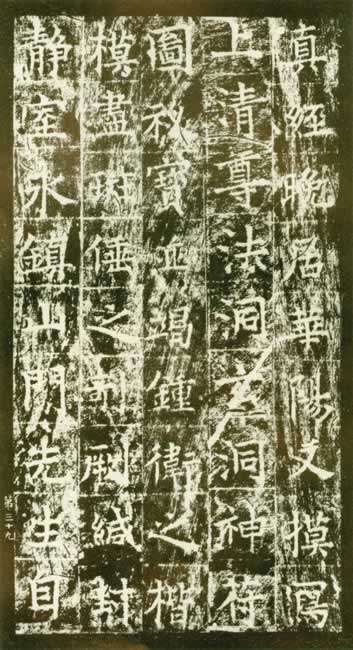 真經晚居華陽又摸寫
上清尊法洞玄洞神符
圖秘寶並竭鍾衛之楷
模盡班倕之剞劂緘封
静室永鎮山門先生自
第三十九